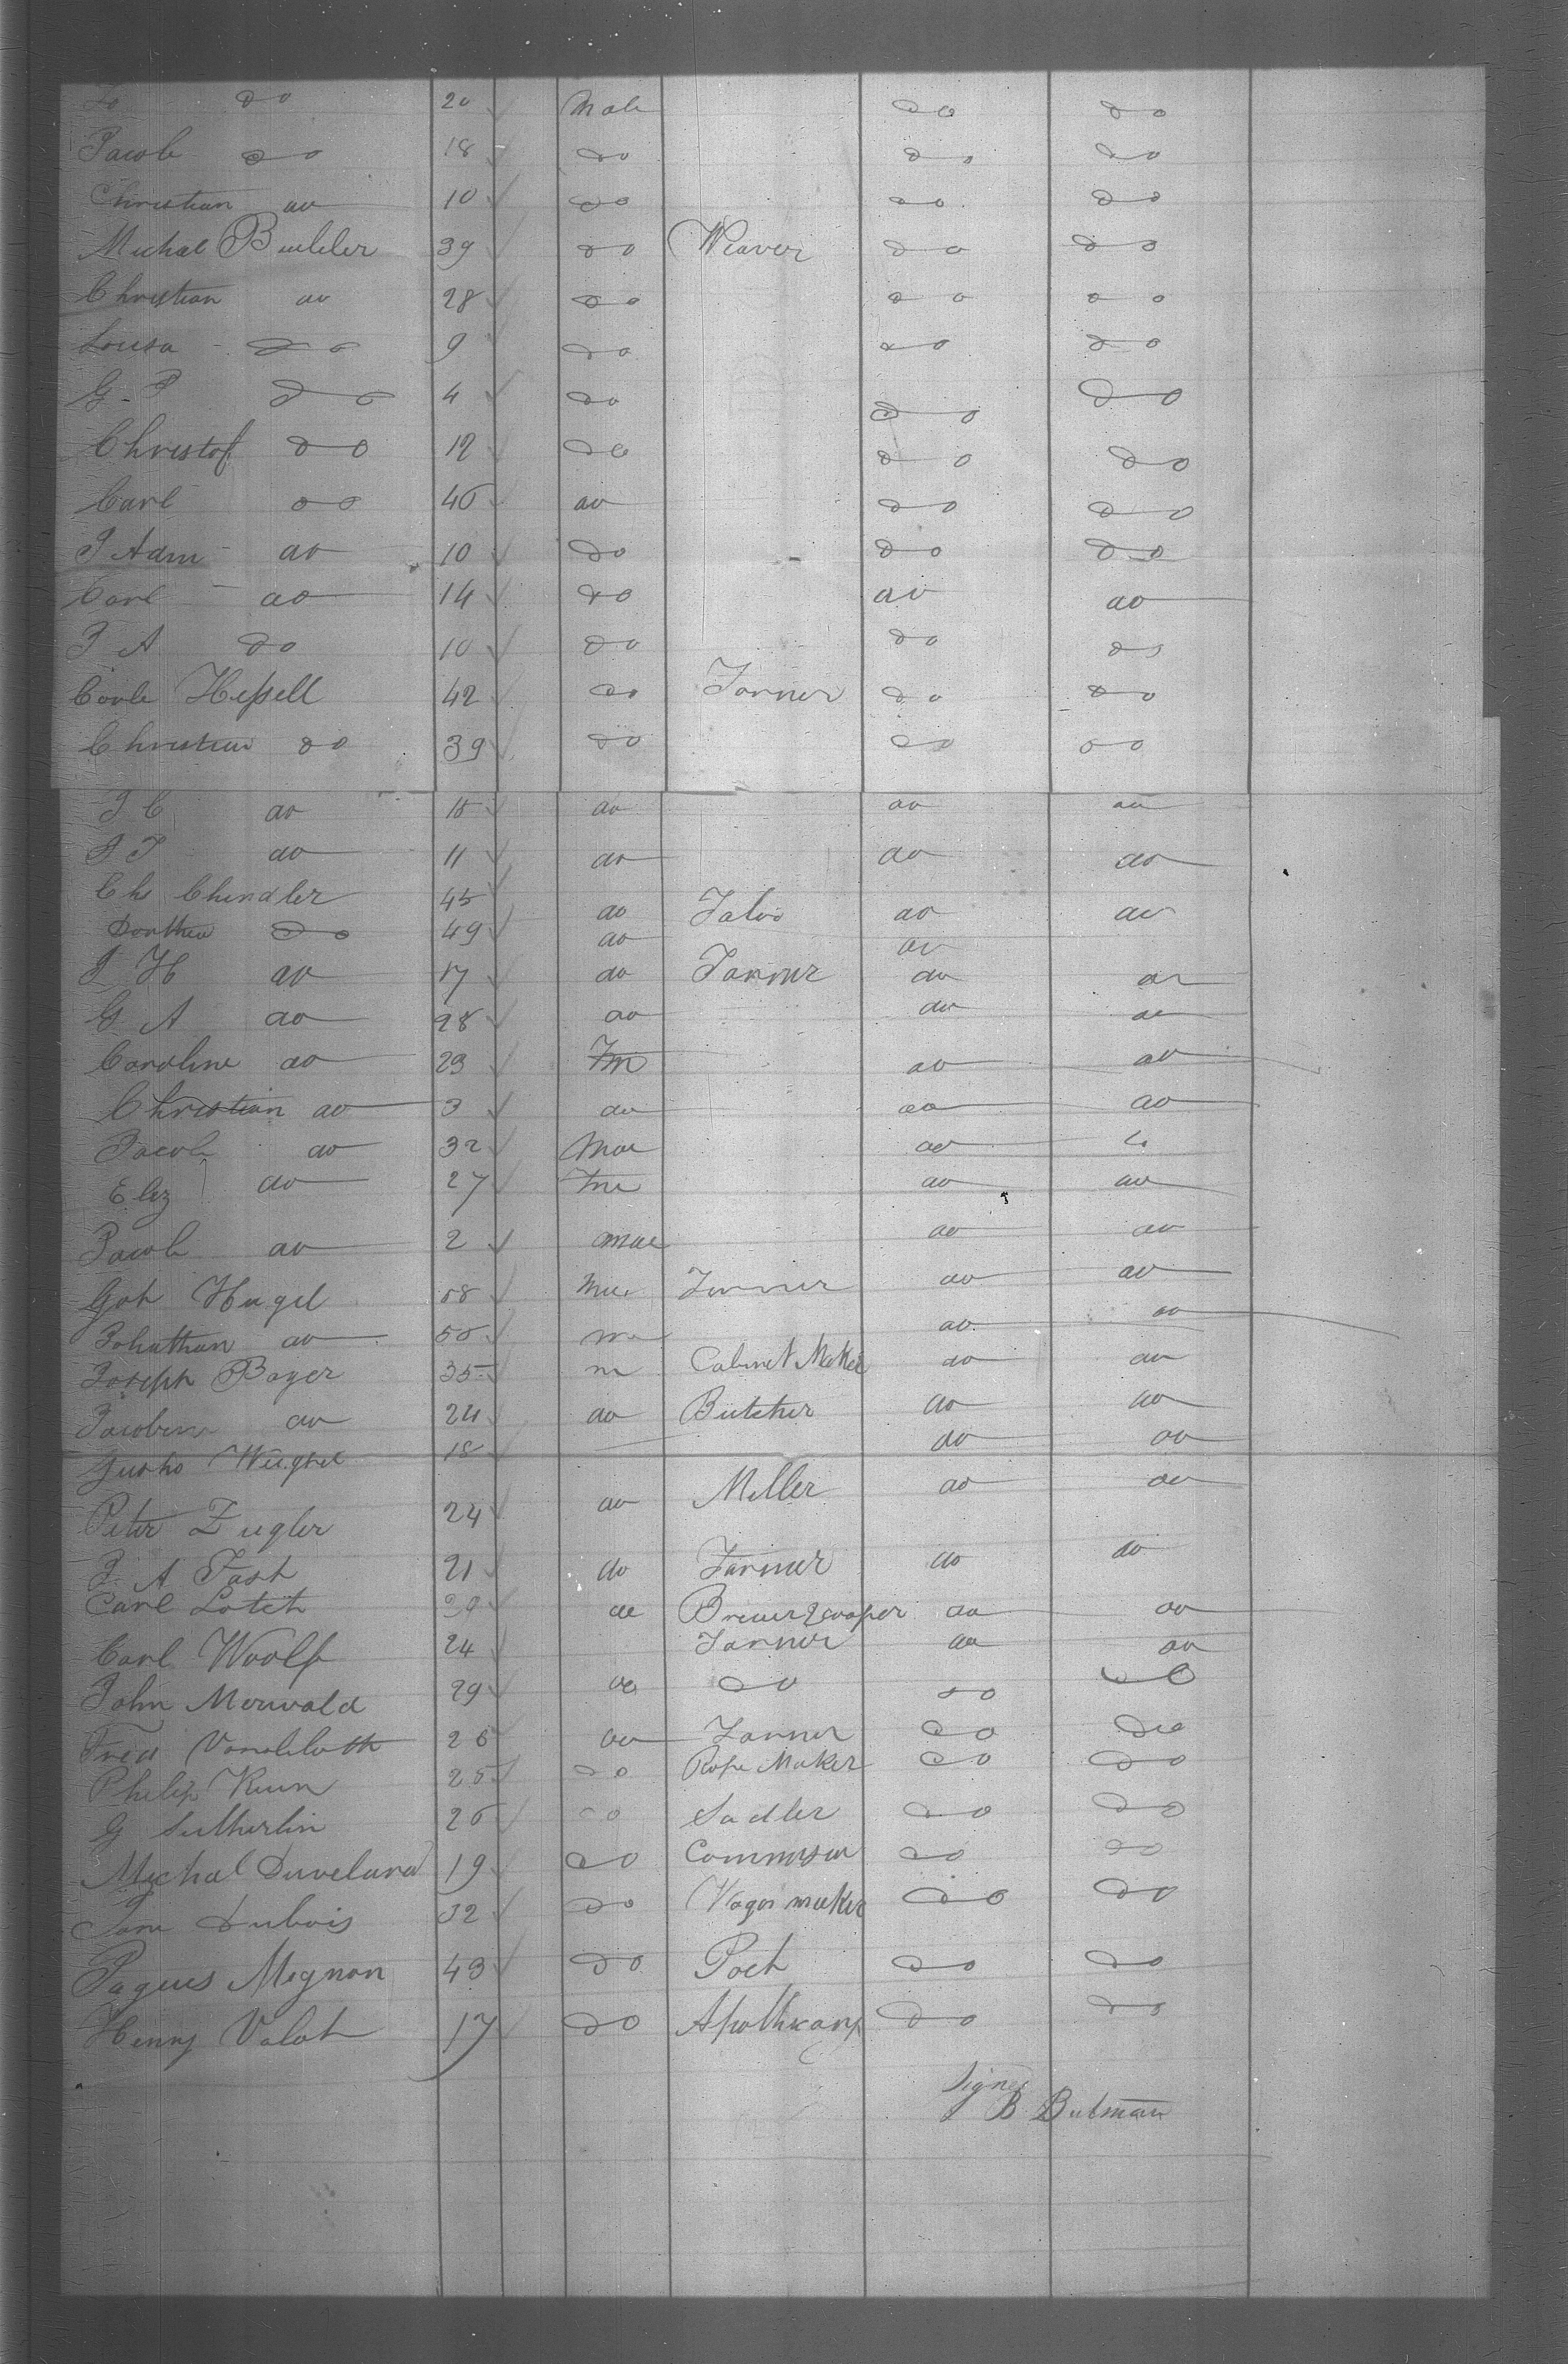 do 20 Male do do
Jacob do 18 do do do
Christian do 10 do do do
Michal Buebler 39 do Weaver do do
Christian do 28 do do do
Louisa do 9 do do do
G. P do 4 do do do
Christof do 12 do do do
Carl do 40 do do do
J Adm do 10 do do do
Carl do 14 do do do
J A do 10 do do do
Carle Hessell 42 do Farmer do do
Christian do 39 do do do
J C do 15 do do do
J J do 11 do do do
Ch Chendler 45 do do do
Dorthea do 49 do do
J H do 17 do Farmer do do
G A do 28 do do do
Caroline do 23 Fm do do
Christian do 3 do do do
Jacob do 32 Mae do
Eliz do 27 Fme do do
Jacob do 2 mae do do
Got Hugel 58 Farmer do do
Johathan do 50 m do do
Joseph Boyer 35 m Cabinet Maker do do
do 24 do Butcher do do
18 do do
Peter Zugler 24 do Miller do do
J. A Fast 21 do Farmer do do
Carl Lotch 29 do Brewer & Cooper do do
Carl Woolf 24 Farmer do do
John Merwald 29 do do do do
Fred 26 do Farmer do do
Philip Keun 25 do Rope Maker do do
G Sutherlin 26 do Sadler do do
Michal Duveland 19 do do do
Jane Dubois 32 do Wagon maker do do
Jaques Mignon 43 do Poet do do
Henry Valot 17 do Apothecary do do
Signed
B Butman